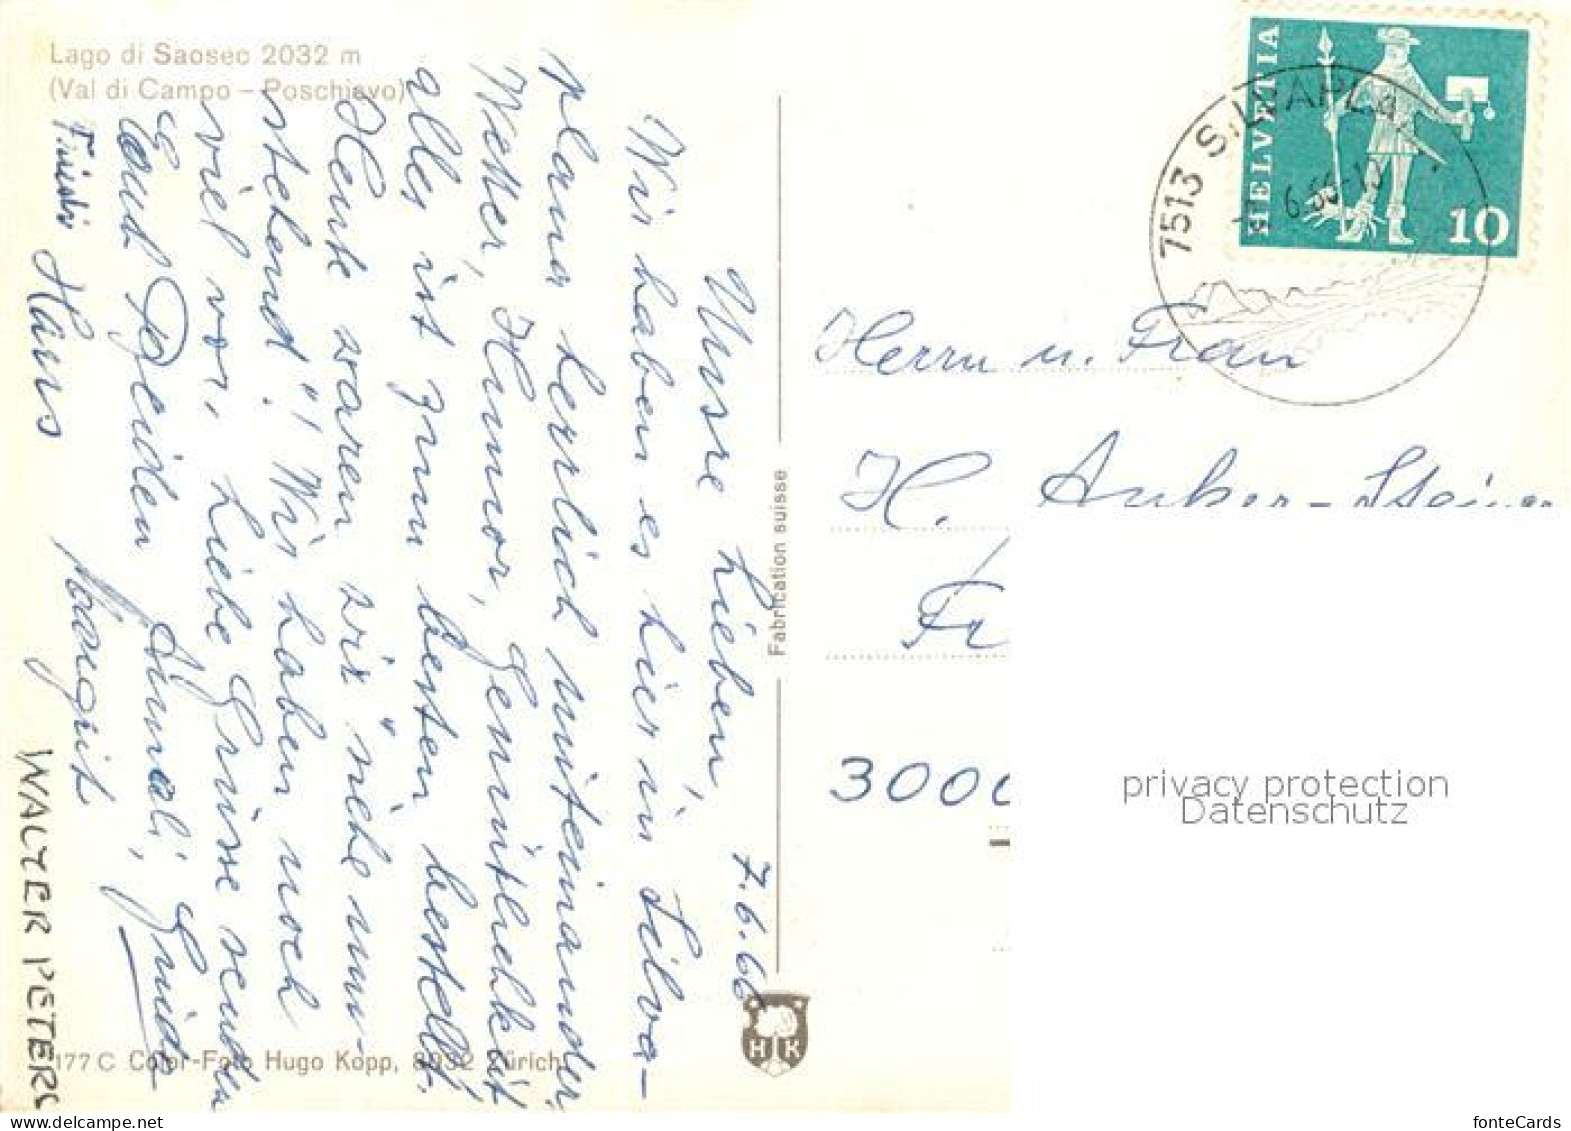 Lago di Saoseo 2032 m
(Val di Campo – Poschiavo)
7.6.66
Unsre Lieben,
Wir haben es hier in Silva-
plana herrlich miteinander.
Wetter, Humor, Gemütlichkeit
alles ist zum besten bestellt.
Heute waren wir "niene um-
stehend"! Wir haben noch
viel vor. Liebe Grüsse senden
Hans
Margrit
WALTER PETERS
177 C Color-Foto Hugo Kopp, 8032 Zürich
Fabrication suisse
H K
HELVETIA
10
7513 SILVAPLANA
Herrn u. Frau
H. Anker-Steiner
Fr
3000
privacy protection
Datenschutz
fonteCards